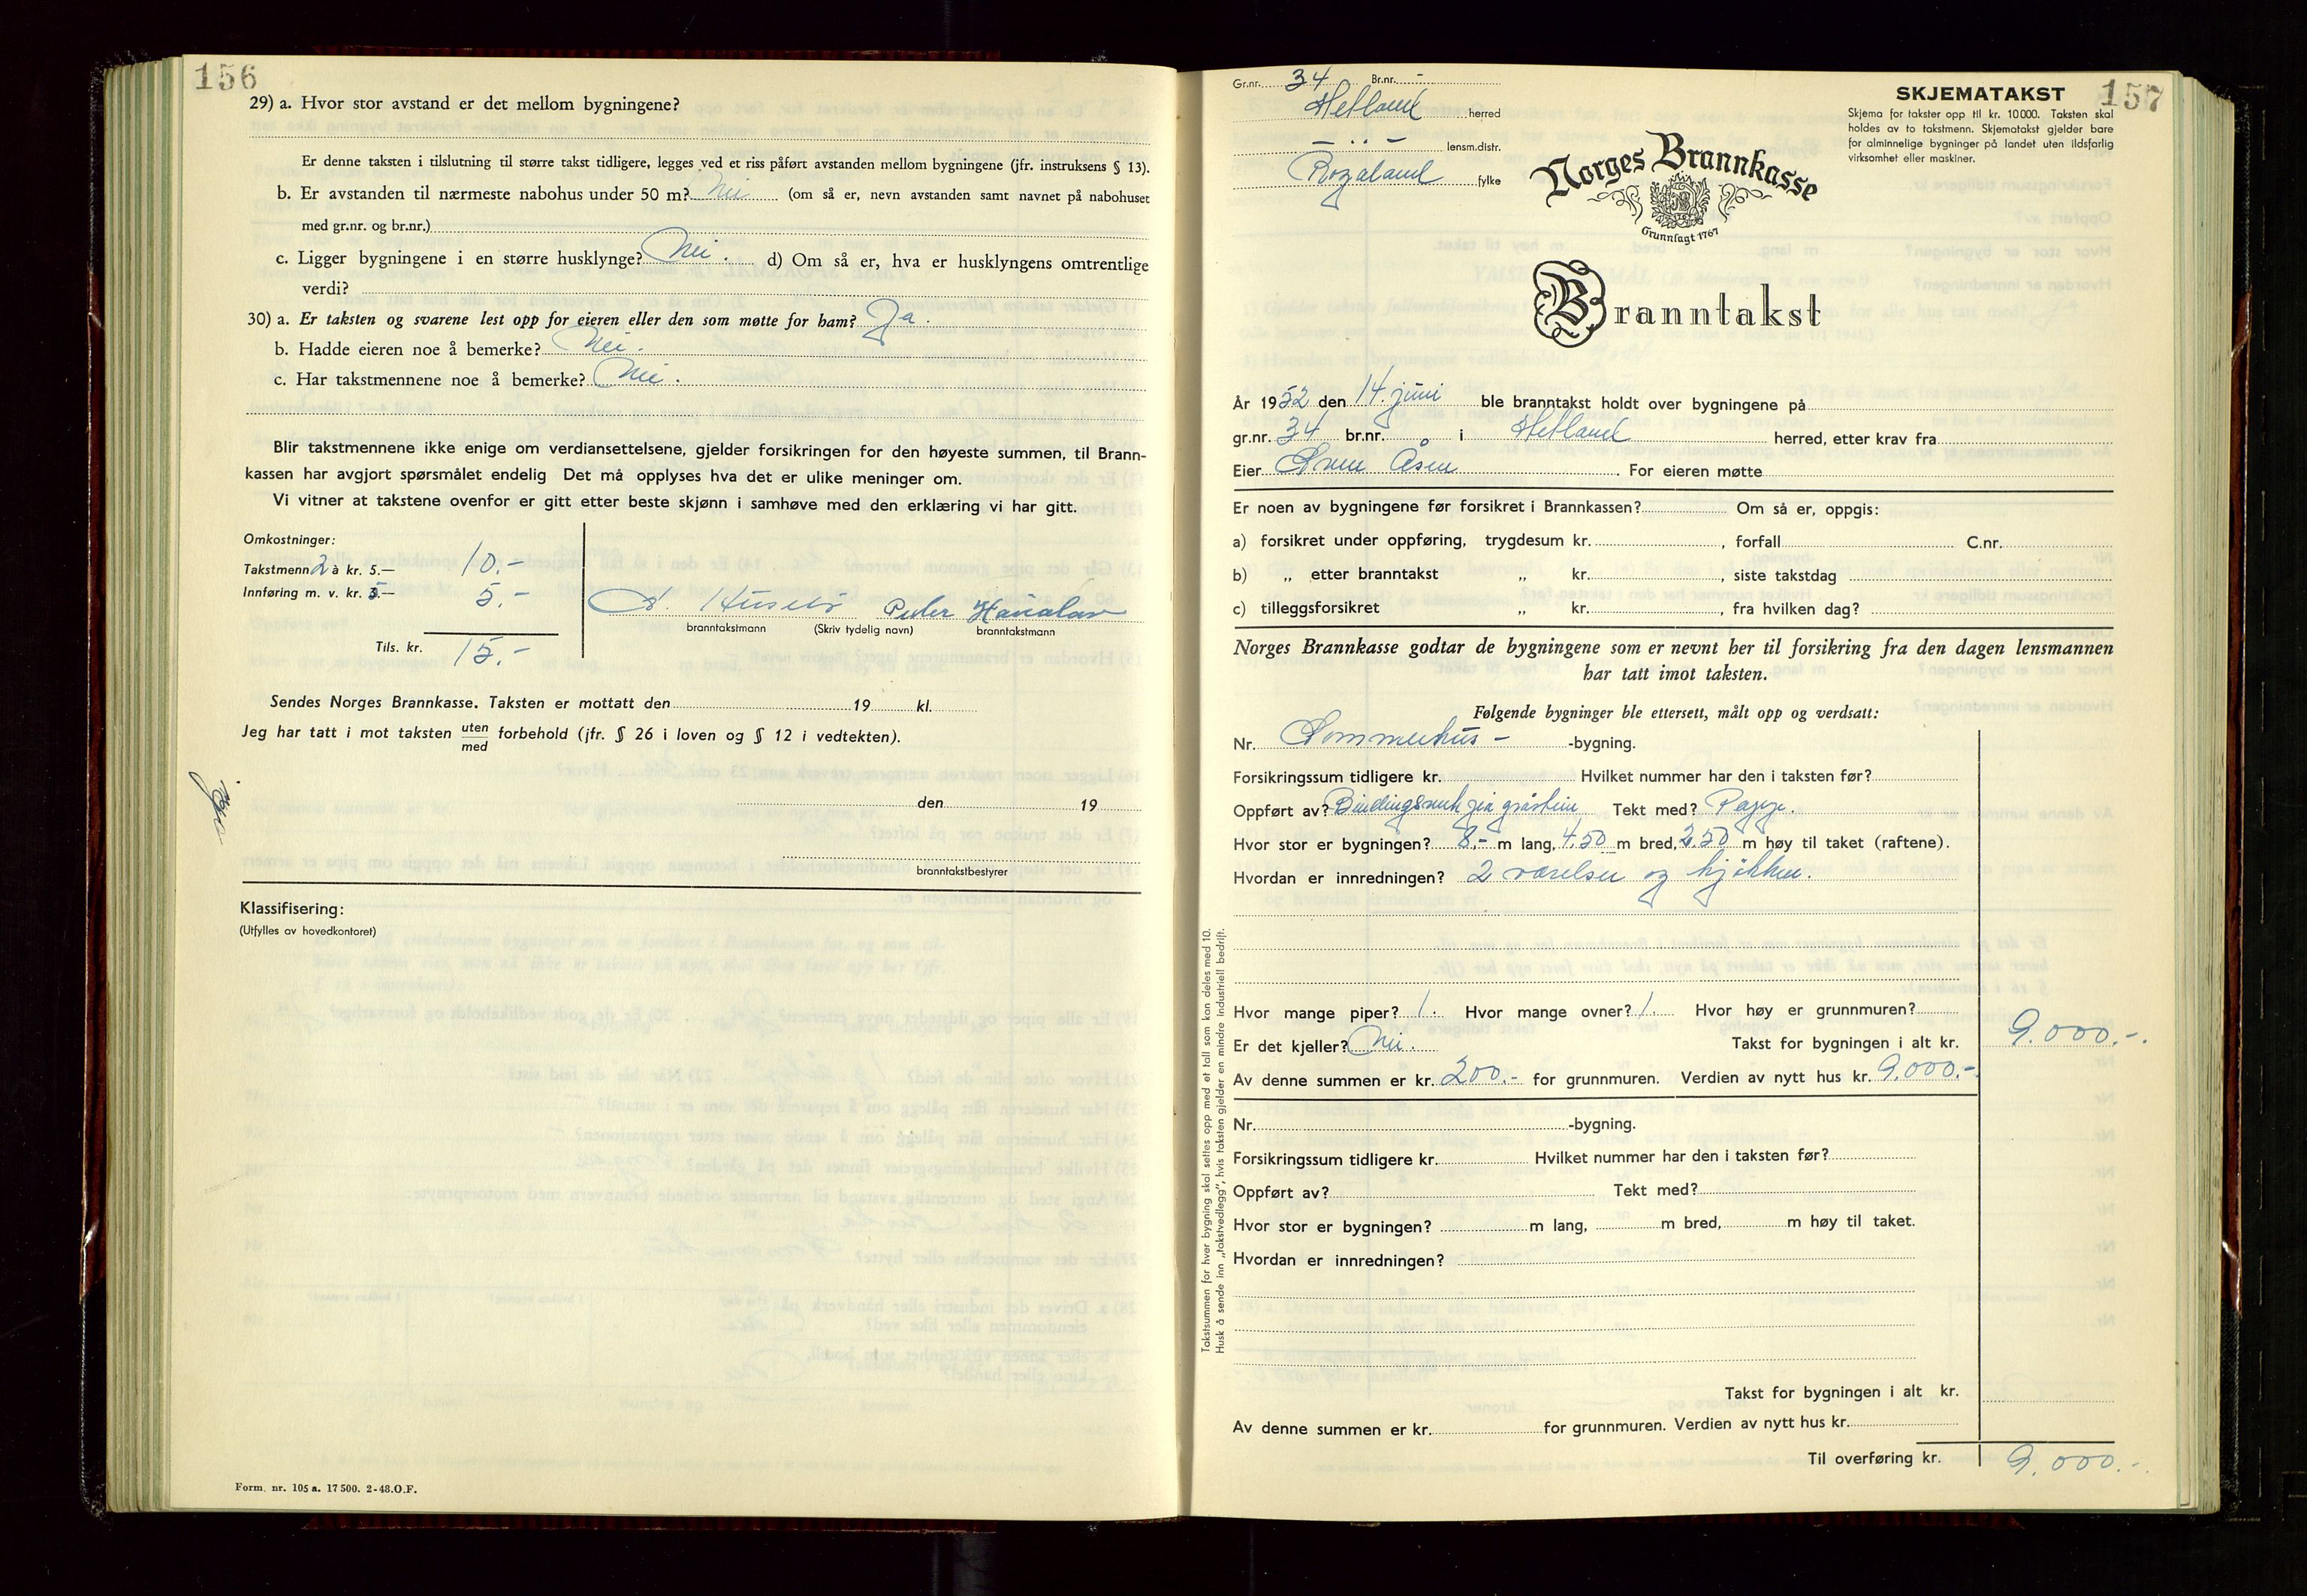 156
29) a. Hvor stor avstand er det mellom bygningene?
Er denne taksten i tilslutning til større takst tidligere, legges ved et riss påført avstanden mellom bygningene (jfr. instruksens § 13).
b. Er avstanden til nærmeste nabohus under 50 m? Nei (om så er, nevn avstanden samt navnet på nabohuset
med gr.nr. og br.nr.)
c. Ligger bygningene i en større husklynge? Nei. d) Om så er, hva er husklyngens omtrentlige
verdi?
30) a. Er taksten og svarene lest opp for eieren eller den som møtte for ham? Ja.
b. Hadde eieren noe å bemerke? Nei.
c. Har takstmennene noe å bemerke? Nei.
Blir takstmennene ikke enige om verdiansettelsene, gjelder forsikringen for den høyeste summen, til Brann-
kassen har avgjort spørsmålet endelig Det må opplyses hva det er ulike meninger om.
Vi vitner at takstene ovenfor er gitt etter beste skjønn i samhøve med den erklæring vi har gitt.
Omkostninger:
Takstmenn 2 à kr. 5.— 10.-
Innføring m. v. kr. 5.— 5.-
Husebø Peder
branntakstmann (Skriv tydelig navn) branntakstmann
Tils. kr. 15.-
Sendes Norges Brannkasse. Taksten er mottatt den 19 kl.
Jeg har tatt i mot taksten uten
med forbehold (jfr. § 26 i loven og § 12 i vedtekten).
den 19
branntakstbestyrer
Klassifisering:
(Utfylles av hovedkontoret)
Form. nr. 105 a. 17 500. 2-48. O.F.
157
Gr.nr. 34 Br.nr. -
Hetland herred
- „ - lensm.distr.
Rogaland fylke
SKJEMATAKST
Skjema for takster opp til kr. 10 000. Taksten skal
holdes av to takstmenn. Skjematakst gjelder bare
for alminnelige bygninger på landet uten ildsfarlig
virksomhet eller maskiner.
Norges Brannkasse
Grunnlagt 1767
Branntakst
År 1952 den 14. juni ble branntakst holdt over bygningene på
gr.nr. 34 br.nr. i Hetland herred, etter krav fra
Eier Sven Åsen. For eieren møtte
Er noen av bygningene før forsikret i Brannkassen? Om så er, oppgis:
a) forsikret under oppføring, trygdesum kr. , forfall C.nr.
b) „ etter branntakst „ kr. , siste takstdag
c) tilleggsforsikret „ kr. , fra hvilken dag?
Norges Brannkasse godtar de bygningene som er nevnt her til forsikring fra den dagen lensmannen
har tatt imot taksten.
Følgende bygninger ble ettersett, målt opp og verdsatt:
Nr. Sommerhus - -bygning.
Forsikringssum tidligere kr. Hvilket nummer har den i taksten før?
Oppført av? Bindingsverk gråstein Tekt med? Papp.
Hvor stor er bygningen? 8.- m lang, 4,50 m bred, 2,50 m høy til taket (raftene).
Hvordan er innredningen? 2 værelser og kjøkken.
Hvor mange piper? 1. Hvor mange ovner? 1. Hvor høy er grunnmuren?
Er det kjeller? Nei. Takst for bygningen i alt kr. 9.000.-.
Av denne summen er kr. 200.- for grunnmuren. Verdien av nytt hus kr. 9.000.-
Nr. -bygning.
Forsikringssum tidligere kr. Hvilket nummer har den i taksten før?
Oppført av? Tekt med?
Hvor stor er bygningen? m lang, m bred, m høy til taket.
Hvordan er innredningen?
Takst for bygningen i alt kr.
Av denne summen er kr. for grunnmuren. Verdien av nytt hus kr.
Til overføring kr. 9.000.-
Takstsummen for hver bygning skal settes opp med et tall som kan deles med 10.
Husk å sende inn „takstvedlegg", hvis taksten gjelder en mindre industriell bedrift.